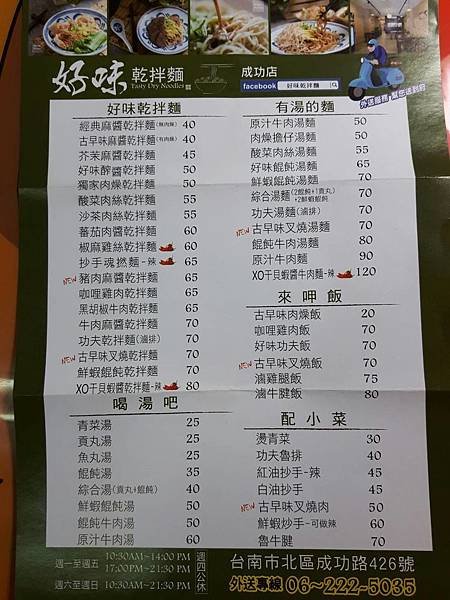 好味 乾拌麵 成功店
Tasty Dry Noodles
facebook 好味乾拌麵
外送服務 幫您送到府
好味乾拌麵
經典麻醬乾拌麵(無肉燥) 40
古早味麻醬乾拌麵(有肉燥) 40
芥茉麻醬乾拌麵 45
好味醡醬乾拌麵 50
獨家肉燥乾拌麵 50
酸菜肉絲乾拌麵 55
沙茶肉絲乾拌麵 55
蕃茄肉醬乾拌麵 60
椒麻雞絲乾拌麵 60
抄手魂撚麵-辣 65
NEW 豬肉麻醬乾拌麵 65
咖哩雞肉乾拌麵 65
黑胡椒牛肉乾拌麵 65
牛肉麻醬乾拌麵 70
功夫乾拌麵(滷排) 70
NEW 古早味叉燒乾拌麵 70
鮮蝦餛飩乾拌麵 70
XO干貝蝦醬乾拌麵-辣 80
喝湯吧
青菜湯 25
貢丸湯 25
魚丸湯 25
餛飩湯 35
綜合湯(貢丸+餛飩) 40
鮮蝦餛飩湯 50
餛飩牛肉湯 50
原汁牛肉湯 60
有湯的麵
原汁牛肉湯麵 50
肉燥擔仔湯麵 50
酸菜肉絲湯麵 55
好味餛飩湯麵 65
鮮蝦餛飩湯麵 70
綜合湯麵(2餛飩+1貢丸+2鮮蝦餛飩) 70
功夫湯麵(滷排) 70
NEW 古早味叉燒湯麵 70
餛飩牛肉湯麵 80
原汁牛肉麵 90
XO干貝蝦醬牛肉麵-辣 120
來呷飯
古早味肉燥飯 20
咖哩雞肉飯 70
好味功夫飯 70
NEW 古早味叉燒飯 70
滷雞腿飯 75
滷牛腱飯 80
配小菜
燙青菜 30
功夫魯排 40
紅油抄手-辣 45
白油抄手 45
NEW 古早味叉燒肉 50
鮮蝦炒手-可做辣 60
魯牛腱 70
週一至週五 10:30AM~14:00 PM
17:00PM~21:30 PM
週六至週日 10:30AM~21:30 PM
週四公休
台南市北區成功路426號
外送專線 06~222-5035